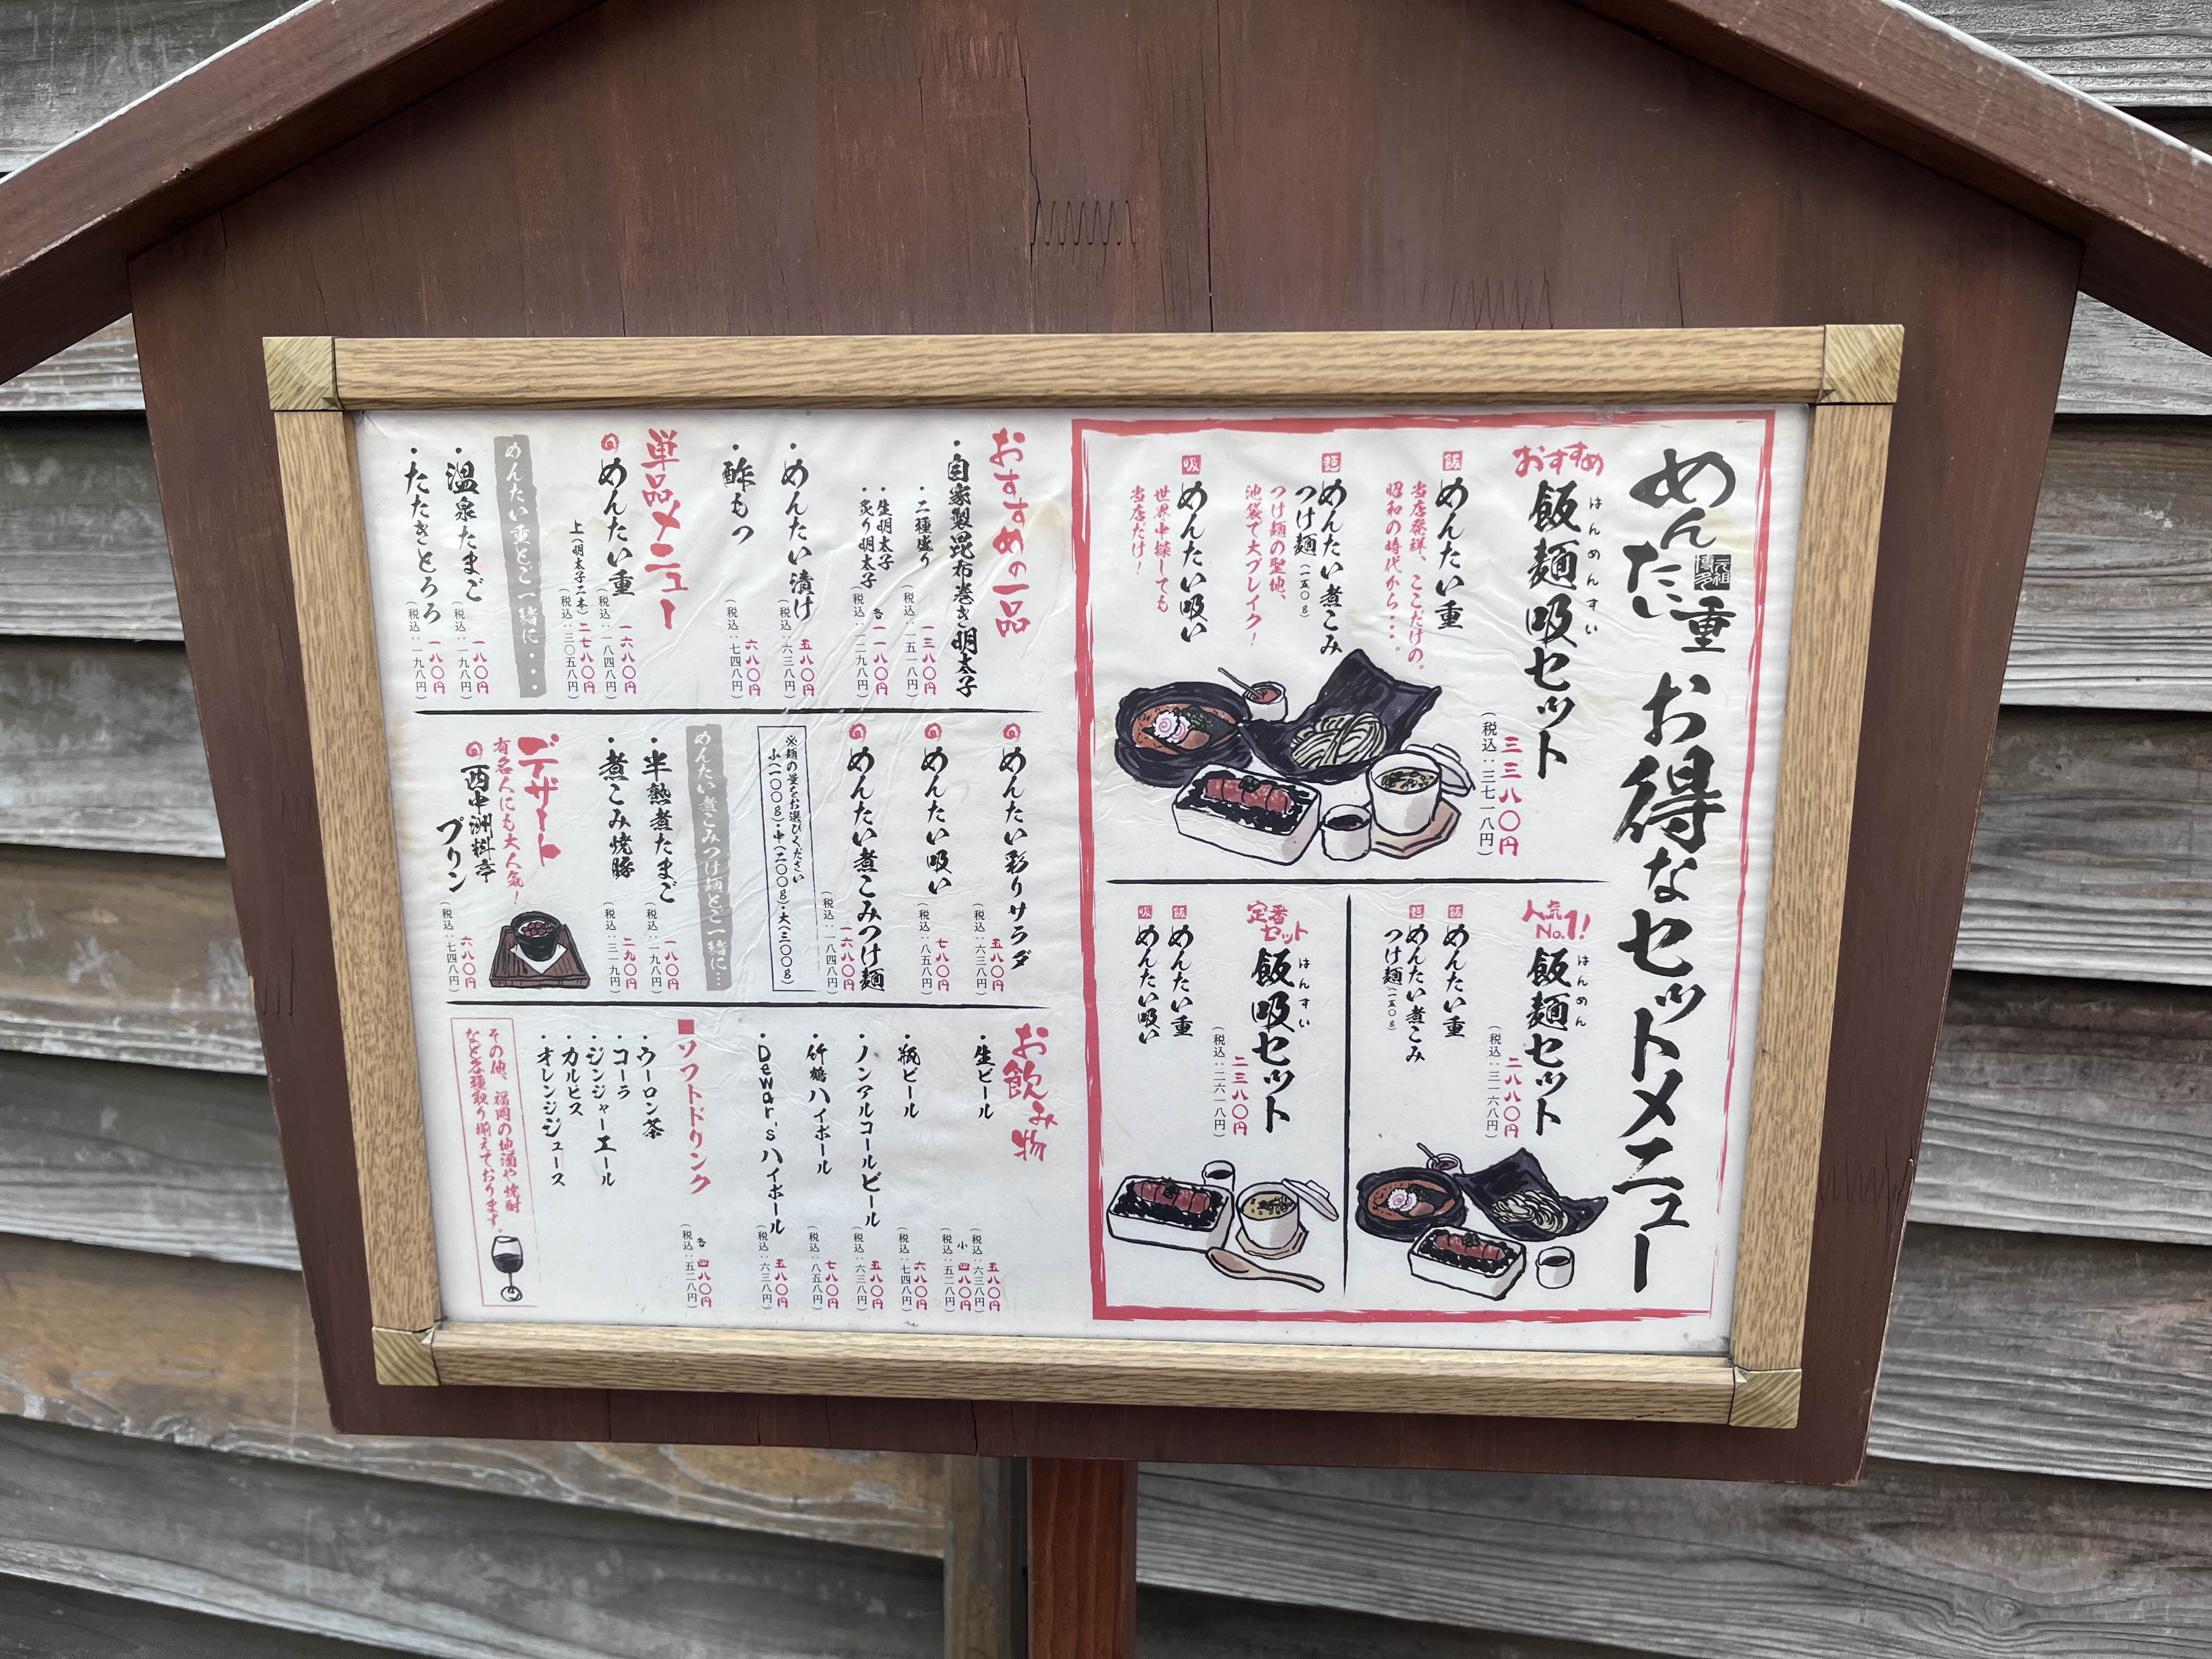 元祖博多
めんたい重
お得なセットメニュー
おすすめ
はんめんすい
飯麺吸セット
三三八〇円
(税込:三七一八円)
飯
めんたい重
当店発祥、ここだけの。
昭和の時代から・・・
麺
めんたい煮こみ
つけ麺(一五〇g)
つけ麺の聖地、
池袋で大ブレイク!
吸
めんたい吸い
世界中探しても
当店だけ!
人気No.1!
はんめん
飯麺セット
二八八〇円
(税込:三一六八円)
飯
めんたい重
麺
めんたい煮こみ
つけ麺(一五〇g)
定番セット
はんすい
飯吸セット
二三八〇円
(税込:二六一八円)
飯
めんたい重
吸
めんたい吸い
おすすめの一品
・自家製昆布巻き明太子
・二種盛り
一三八〇円
(税込:一五一八円)
・生明太子
・炙り明太子
各一一八〇円
(税込:一二九八円)
・めんたい漬け
五八〇円
(税込:六三八円)
・酢もつ
六八〇円
(税込:七四八円)
単品メニュー
めんたい重
一六八〇円
(税込:一八四八円)
上(明太子二本)
二七八〇円
(税込:三〇五八円)
めんたい重とご一緒に・・・
・温泉たまご
一八〇円
(税込:一九八円)
・たたきとろろ
一八〇円
(税込:一九八円)
めんたい彩りサラダ
五八〇円
(税込:六三八円)
めんたい吸い
七八〇円
(税込:八五八円)
めんたい煮こみつけ麺
一六八〇円
(税込:一八四八円)
※麺の量をお選びください
小(一〇〇g)・中(二〇〇g)・大(三〇〇g)
めんたい煮こみつけ麺とご一緒に…
・半熟煮たまご
一八〇円
(税込:一九八円)
・煮こみ焼豚
二九〇円
(税込:三一九円)
デザート
有名人にも大人気!
西中洲料亭
プリン
六八〇円
(税込:七四八円)
お飲み物
・生ビール
五八〇円
(税込:六三八円)
小 四八〇円
(税込:五二八円)
・瓶ビール
六八〇円
(税込:七四八円)
・ノンアルコールビール
五八〇円
(税込:六三八円)
・竹鶴ハイボール
七八〇円
(税込:八五八円)
・Dewar'sハイボール
五八〇円
(税込:六三八円)
■ソフトドリンク
各 四八〇円
(税込:五二八円)
・ウーロン茶
・コーラ
・ジンジャーエール
・カルピス
・オレンジジュース
その他、福岡の地酒や焼酎
など各種取り揃えております。